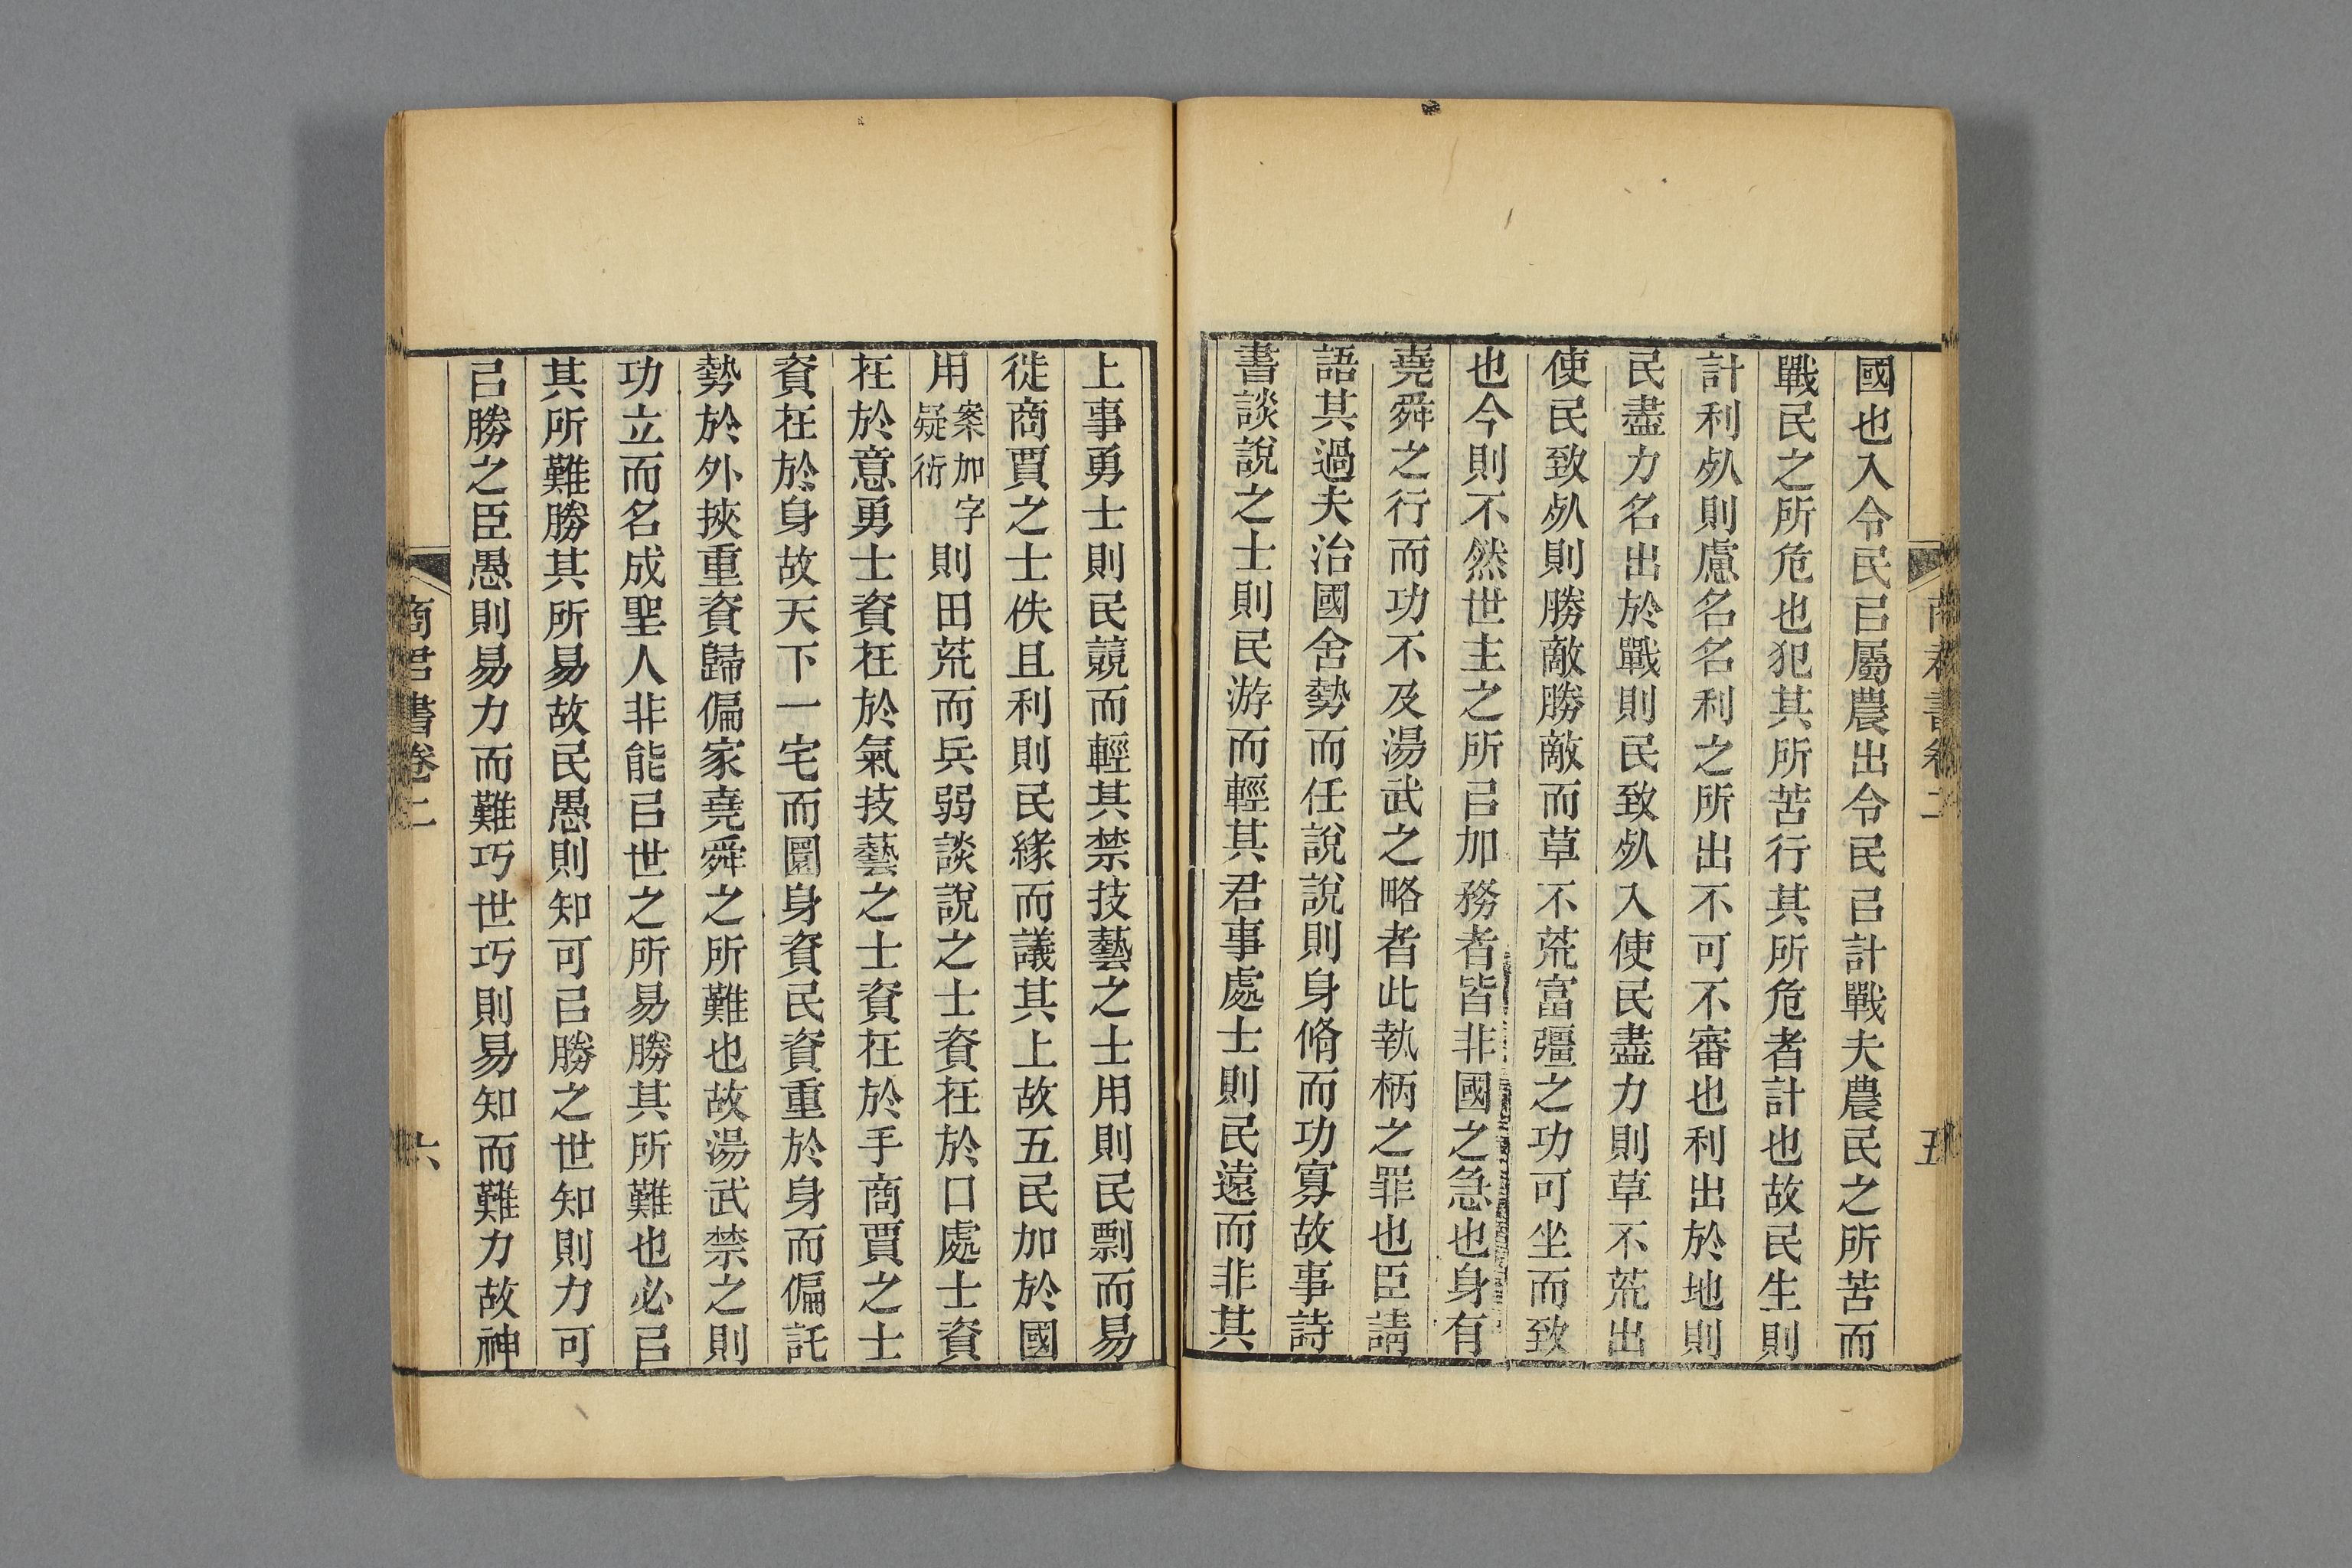 國也入令民㠯屬農出令民㠯計戰夫農民之所苦而
戰民之所危也犯其所苦行其所危者計也故民生則
計利𣦸則慮名名利之所出不可不審也利出於地則
民盡力名出於戰則民致𣦸入使民盡力則草不荒出
使民致𣦸則勝敵勝敵而草不荒富彊之功可坐而致
也今則不然世主之所㠯加務者皆非國之急也身有
堯舜之行而功不及湯武之略者此執柄之罪也臣請
語其過夫治國舍勢而任說說則身脩而功寡故事詩
書談說之士則民游而輕其君事處士則民遠而非其
上事勇士則民競而輕其禁技藝之士用則民剽而易
徙商賈之士佚且利則民緣而議其上故五民加於國
用案加字疑衍則田荒而兵弱談說之士資在於口處士資
在於意勇士資在於氣技藝之士資在於手商賈之士
資在於身故天下一宅而圜身資民資重於身而偏託
勢於外挾重資歸偏家堯舜之所難也故湯武禁之則
功立而名成聖人非能㠯世之所易勝其所難也必㠯
其所難勝其所易故民愚則知可㠯勝之世知則力可
㠯勝之臣愚則易力而難巧世巧則易知而難力故神
商君書卷二
五
商君書卷二
六